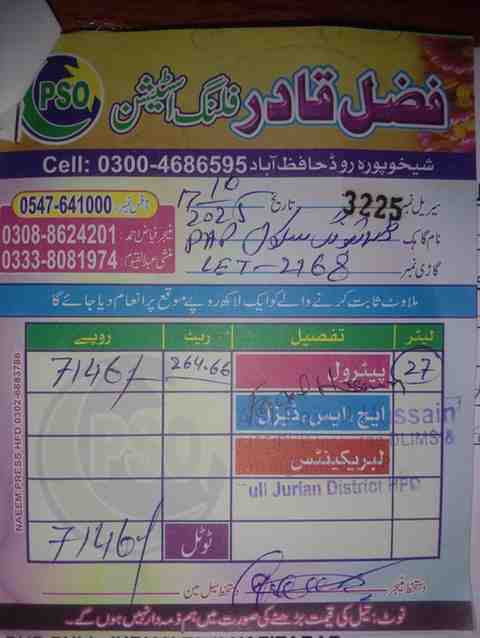 PSO
فضل قادر فلنگ اسٹیشن
شیخوپورہ روڈ حافظ آباد Cell: 0300-4686595
0547-641000
سیریل نمبر 3225 تاریخ 17/10/2025
0308-8624201
نام گاہک
0333-8081974
منشی عبدالقیوم
گاڑی نمبر LET-2168
ملاوٹ ثابت کرنے والے کو ایک لاکھ روپے موقع پر انعام دیا جائے گا
لیٹر تفصیل ریٹ روپے
27 پیٹرول 264.66 7146/
ایچ۔ایس۔ڈیزل
لبریکینٹس
uli Jurian District HFD
ٹوٹل 7146/
دستخط منیجر دستخط سیل مین
نوٹ: تیل کی قیمت بڑھنے کی صورت میں ہم ذمہ دار نہیں ہوں گے۔
NAEEM PRESS HFD 0302-6883786